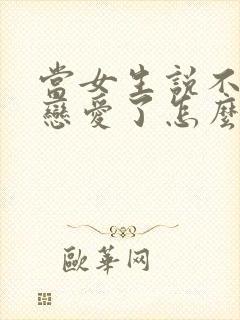 當女生說不
戀愛了怎麼
歐華网